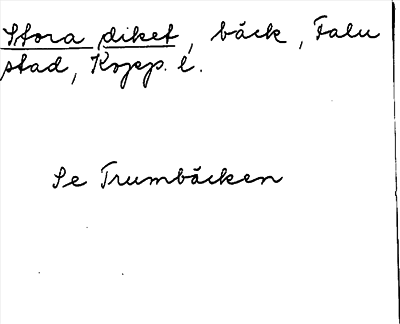 Stora diket, bäck, Falu
stad, Kopp. l.
Se Trumbäcken